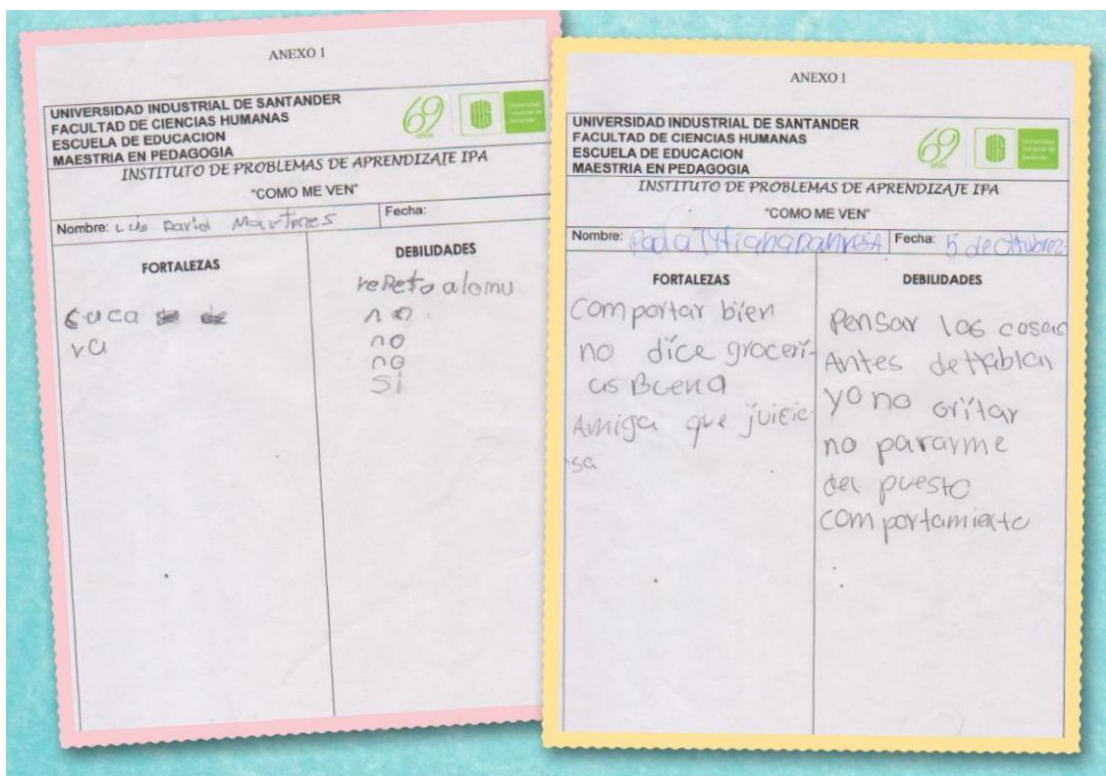 ANEXO 1
UNIVERSIDAD INDUSTRIAL DE SANTANDER
FACULTAD DE CIENCIAS HUMANAS
ESCUELA DE EDUCACION
MAESTRIA EN PEDAGOGIA
69
UIS
INSTITUTO DE PROBLEMAS DE APRENDIZAJE IPA
"COMO ME VEN"
Nombre: Luis David Martines Fecha:
FORTALEZAS
va
DEBILIDADES
rePeto alomu
no
no
no
Si
ANEXO 1
UNIVERSIDAD INDUSTRIAL DE SANTANDER
FACULTAD DE CIENCIAS HUMANAS
ESCUELA DE EDUCACION
MAESTRIA EN PEDAGOGIA
69
UIS
INSTITUTO DE PROBLEMAS DE APRENDIZAJE IPA
"COMO ME VEN"
Nombre: Fecha: 5 de
FORTALEZAS
Comportar bien
no dice groceri-
as Buena
Amiga que juicio
sa
DEBILIDADES
Pensar las cosas
Antes de Hablar
yo no gritar
no pararme
del puesto
comportamiento